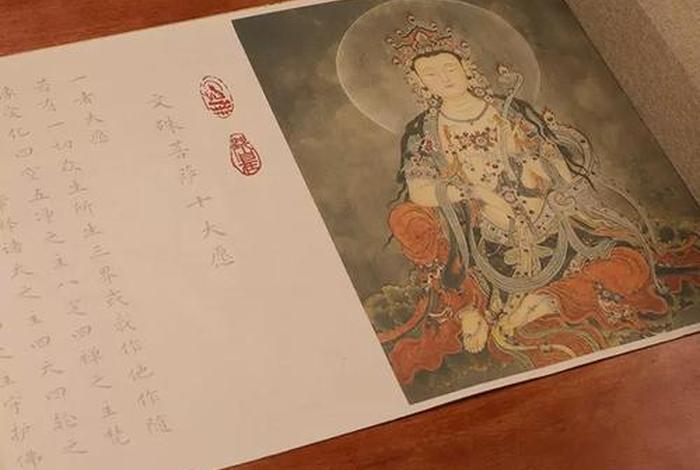 文殊菩萨十大愿
一者大愿
若有一切众生所生三界或我作他作随
缘受化四空五净之主八定四禅之主梵
诸天之王四天四轮之
守护佛